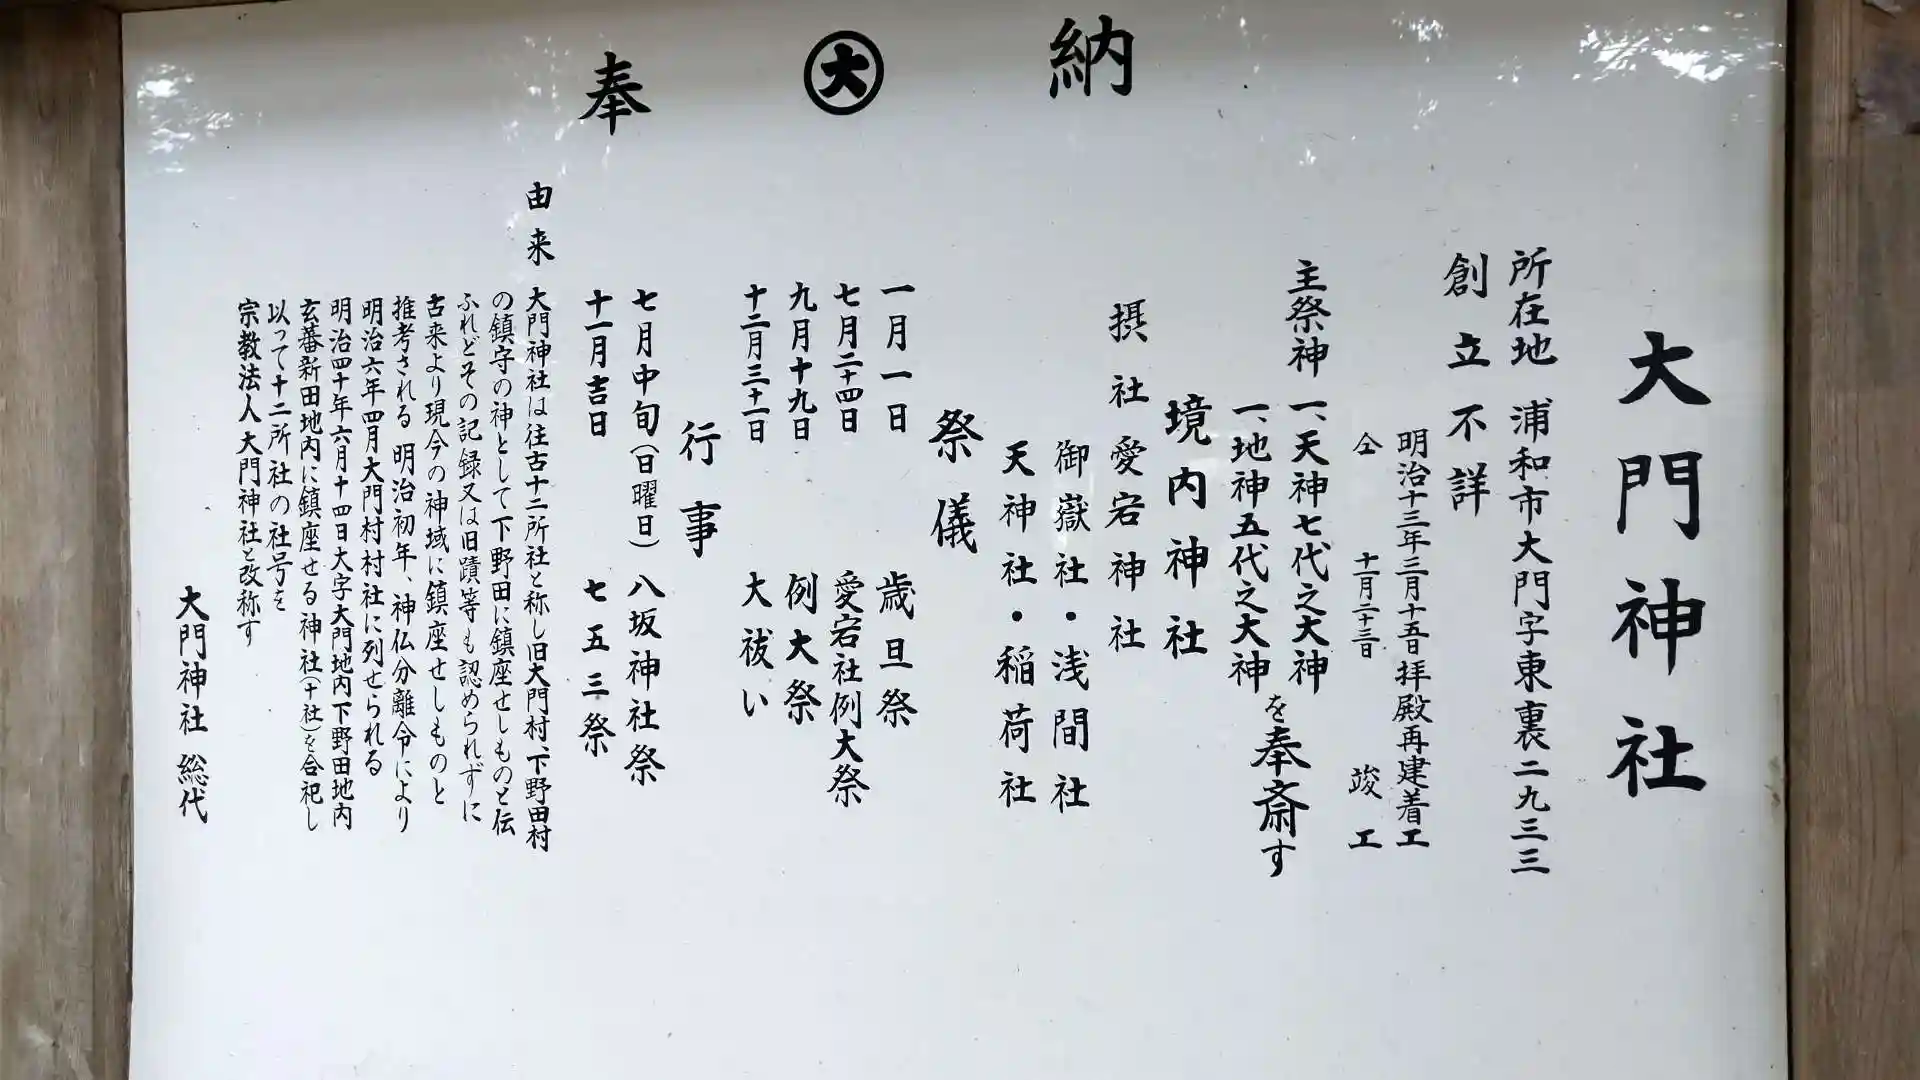 奉 大 納
大門神社
所在地 浦和市大門字東裏二九三三
創立不詳
明治十三年三月十五日拝殿再建着工
仝 十一月二十三日 竣工
主祭神 一、天神七代之大神
一、地神五代之大神
を奉斎す
境内神社
摂社 愛宕神社
御嶽社・浅間社
天神社・稲荷社
祭儀
一月一日 歳旦祭
七月二十四日 愛宕社例大祭
九月十九日 例大祭
十二月三十一日 大祓い
行事
七月中旬(日曜日) 八坂神社祭
十一月吉日 七五三祭
由来 大門神社は往古十二所社と称し旧大門村、下野田村
の鎮守の神として下野田に鎮座せしものと伝
ふれどその記録又は旧蹟等も認められずに
古来より現今の神域に鎮座せしものと
推考される 明治初年、神仏分離令により
明治六年四月大門村村社に列せられる
明治四十年六月十四日大字大門地内下野田地内
玄蕃新田地内に鎮座せる神社(十社)を合祀し
以って十二所社の社号を
宗教法人大門神社と改称す
大門神社 総代